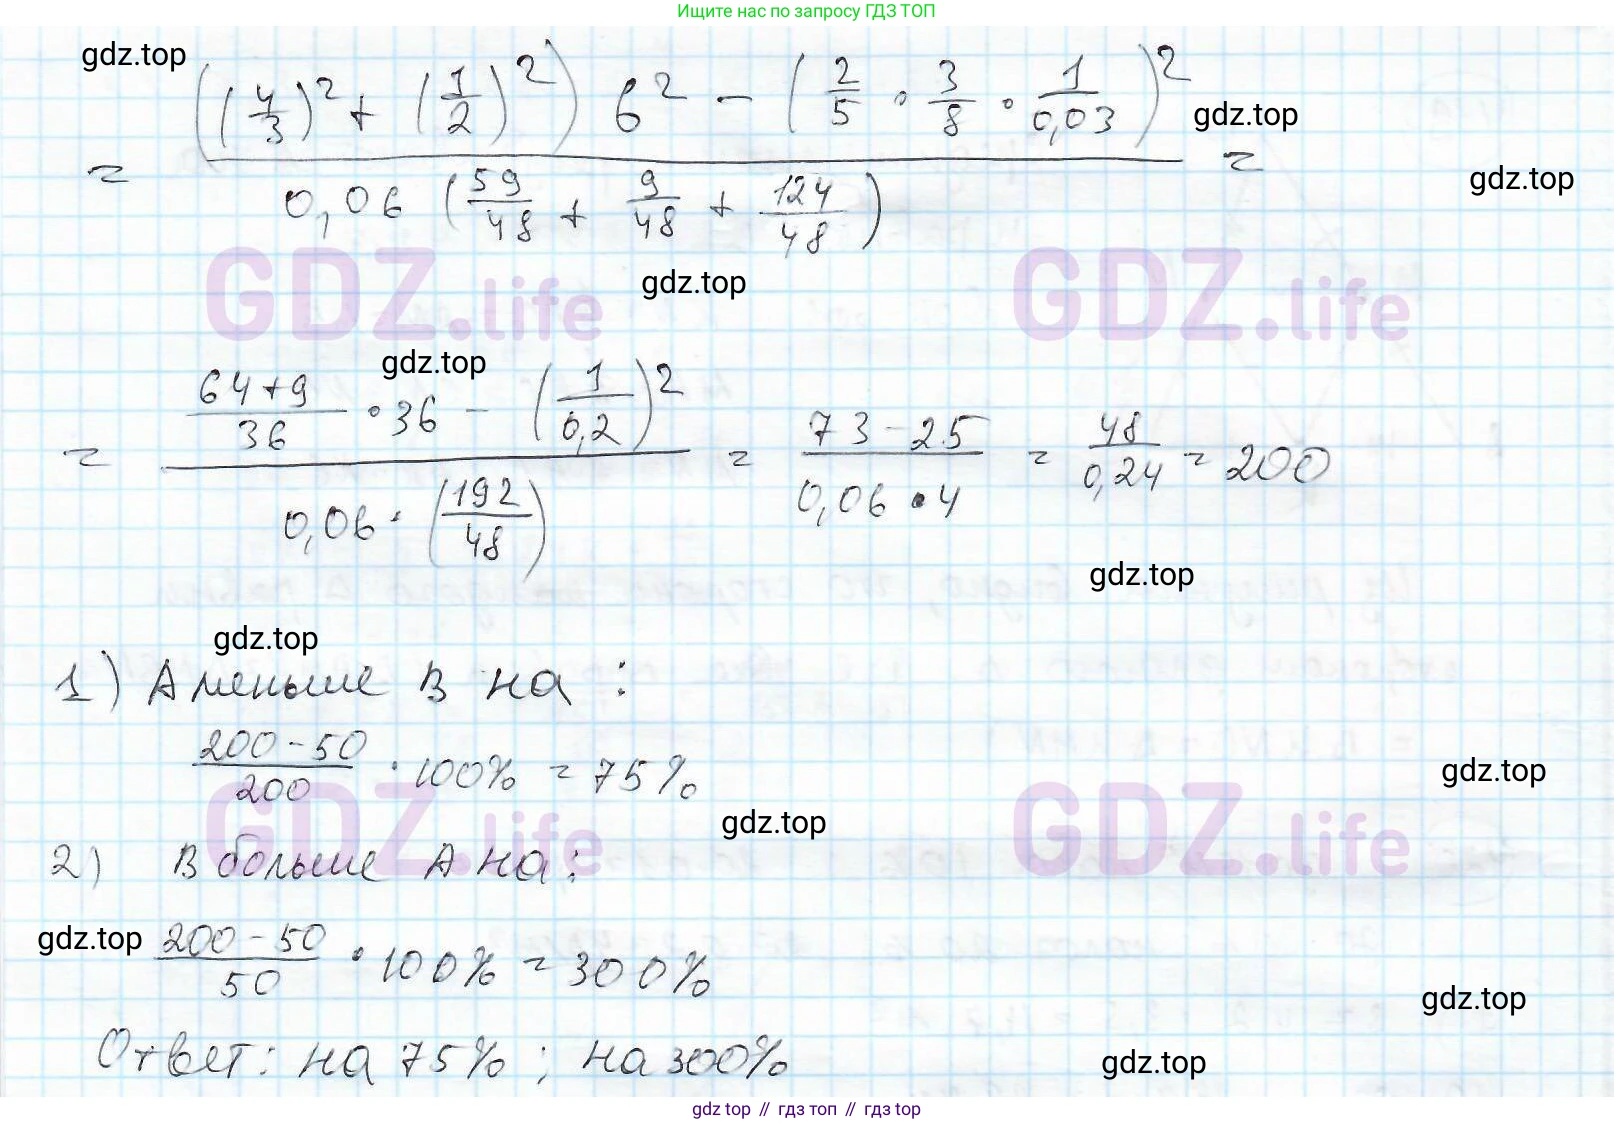 Ищите нас по запросу ГДЗ ТОП
gdz.top
= (((4/3)² + (1/2)²) 6² − (2/5 · 3/8 · 1/0,03)²) / (0,06 (59/48 + 9/48 + 124/48)) =
gdz.top
gdz.top
GDZ.life GDZ.life
gdz.top
gdz.top
= ((64+9)/36 · 36 − (1/0,2)²) / (0,06 · (192/48)) = (73−25)/(0,06 · 4) = 48/0,24 = 200
gdz.top
gdz.top
1) А меньше В на :
(200−50)/200 · 100% = 75%
gdz.top
GDZ.life GDZ.life
gdz.top
2) В больше А на :
gdz.top
(200−50)/50 · 100% = 300%
gdz.top
Ответ: на 75% ; на 300%
gdz.top
gdz top // гдз топ // гдз top